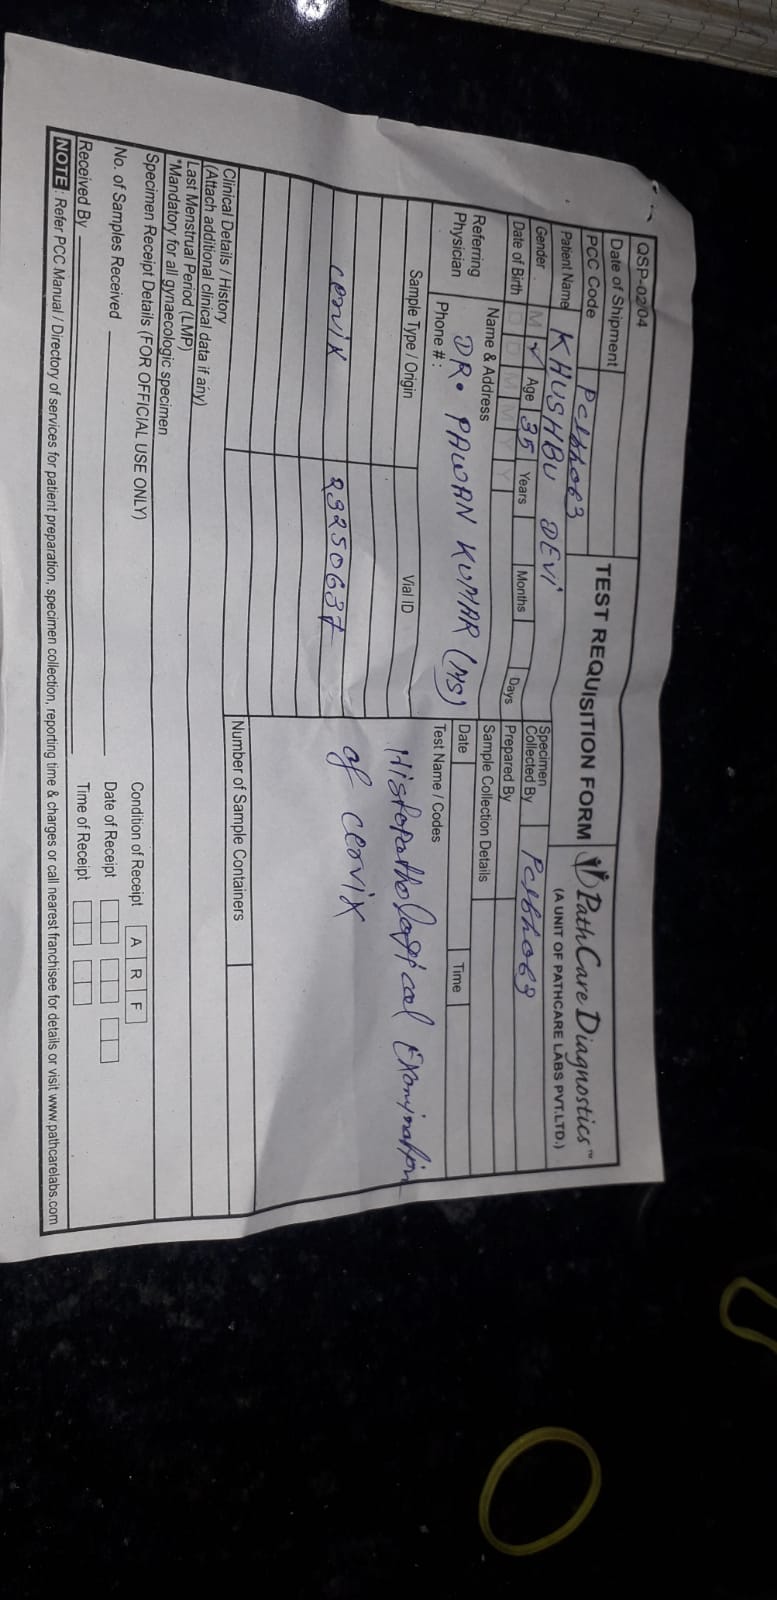 QSP-02/04
TEST REQUISITION FORM
PathCare Diagnostics™
(A UNIT OF PATHCARE LABS PVT.LTD.)
Date of Shipment
PCC Code
Patient Name KHUSHBU DEVI
Gender M ✓ Age 35 Years Months Days
Date of Birth D D M M Y Y
Specimen
Collected By
Prepared By
Referring
Physician
Name & Address
DR. PAWAN KUMAR (MS)
Phone # :
Sample Collection Details
Date Time
Sample Type / Origin Vial ID Test Name / Codes
Histopathological Examination
cervix 23250637 of cervix
Number of Sample Containers
Clinical Details / History
(Attach additional clinical data if any)
Last Menstrual Period (LMP)
*Mandatory for all gynaecologic specimen
Specimen Receipt Details (FOR OFFICIAL USE ONLY)
Condition of Receipt A R F
No. of Samples Received
Date of Receipt
Received By
Time of Receipt
NOTE : Refer PCC Manual / Directory of services for patient preparation, specimen collection, reporting time & charges or call nearest franchisee for details or visit www.pathcarelabs.com